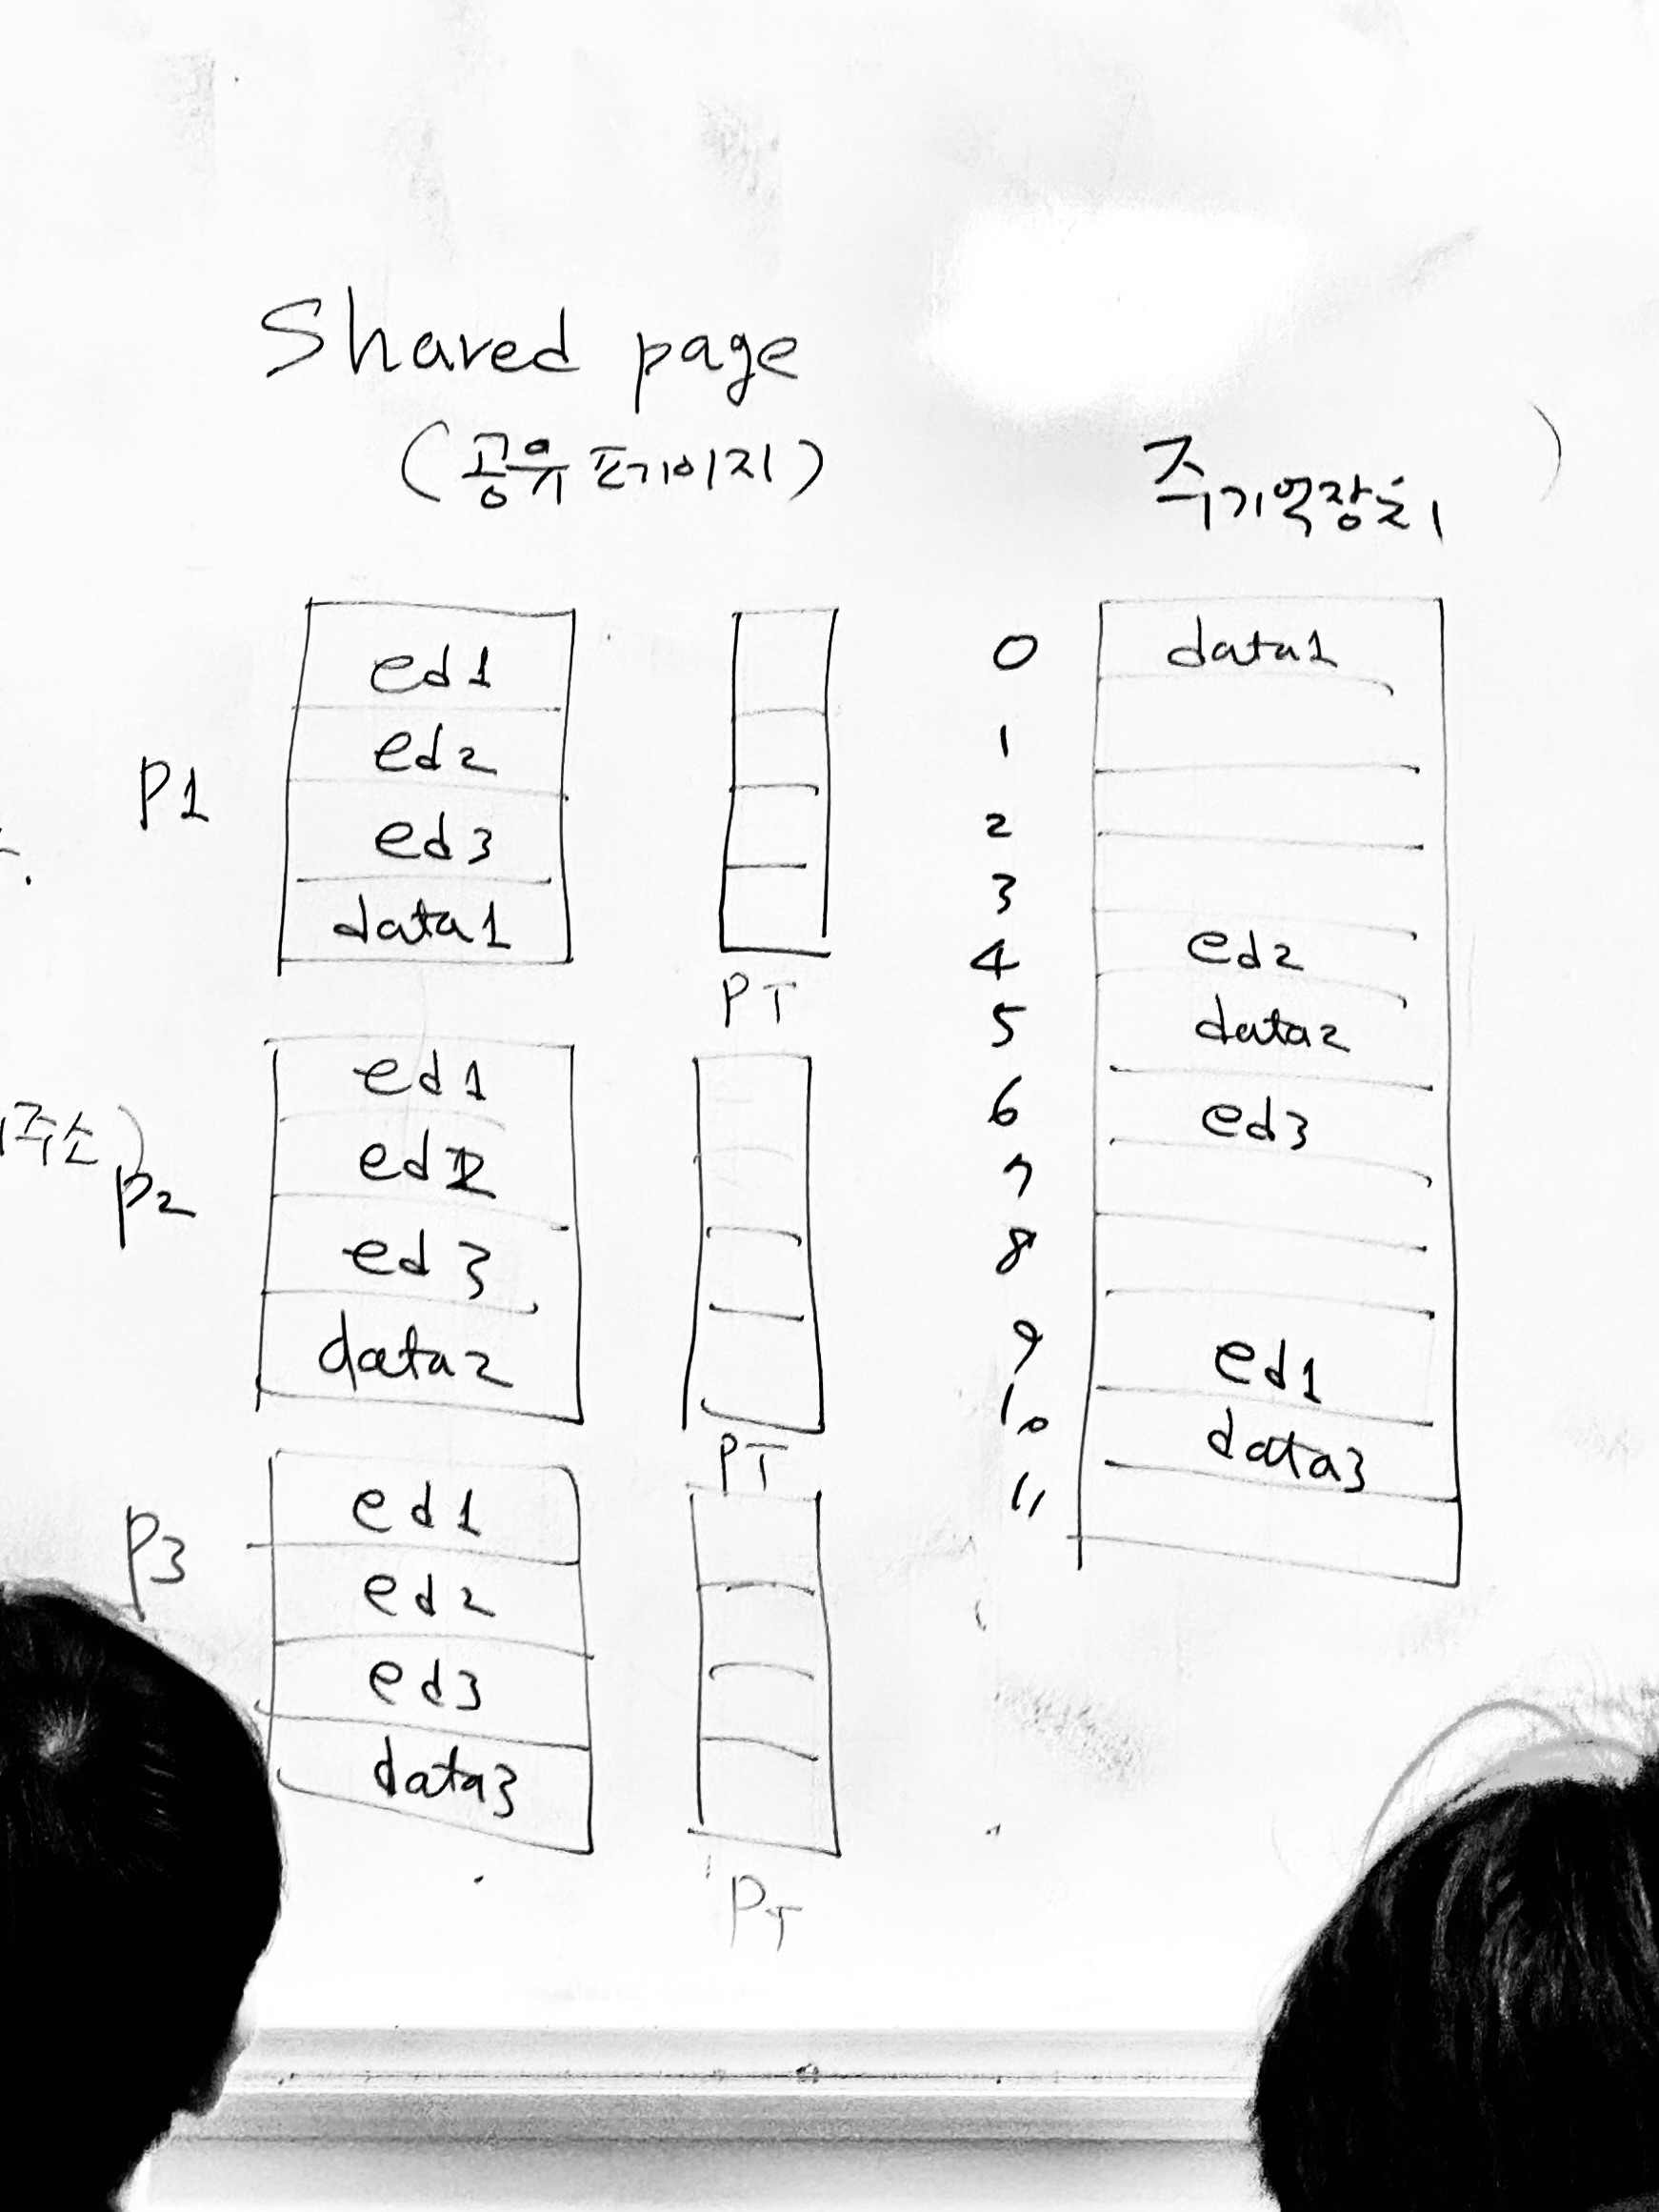 Shared page
(공유 페이지)
주기억장치
P1
ed1
ed2
ed3
data1
PT
주소)
P2
ed1
ed2
ed3
data2
PT
P3
ed1
ed2
ed3
data3
PT
0 data1
1
2
3
4 ed2
5 data2
6 ed3
7
8
9 ed1
10 data3
11